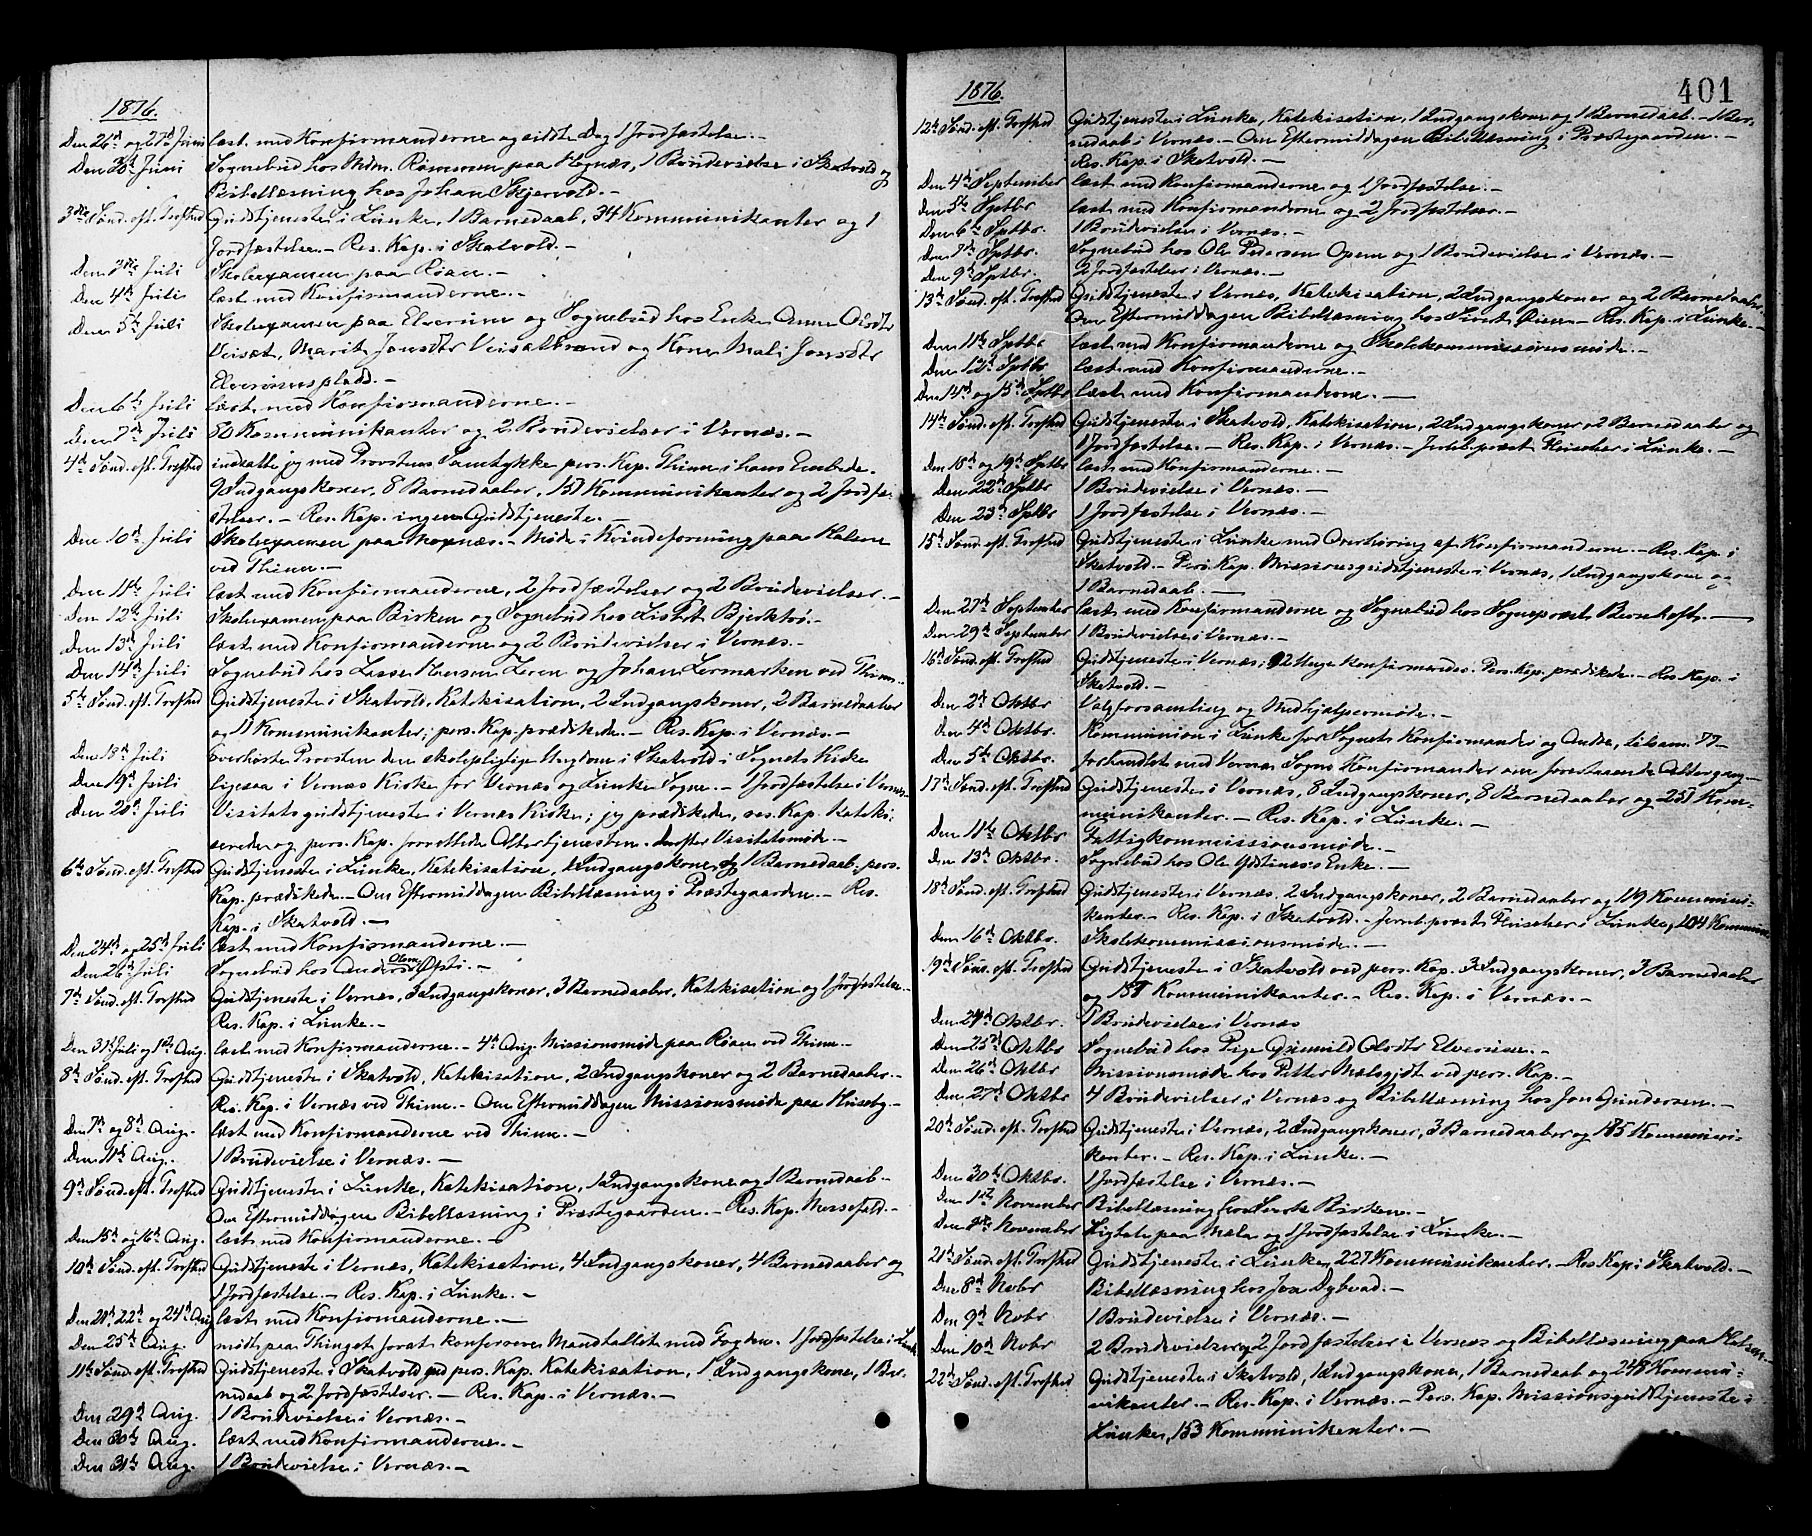 1876.
Den 26de og 27de Juni læst med Konfirmanderne og sidste Dag 1 Jordfæstelse. —
Den 30te Juni Sognebud hos Mdm. Rømmen paa Hognæs, 1 Brudevielse i Skatvold og
Bibellæsning hos Johan Skjervold. —
3die Sønd. eft. Trefstd Gudstjeneste i Lünke, 1 Barnedaab, 34 Kommunikanter og 1
Jordfæstelse. — Res. Kap. i Skatvold. —
Den 3die Juli Skoleexamen paa Røan. —
Den 4de Juli læst med Konfirmanderne. —
Den 5te Juli Skoleexamen paa Elverum og Sognebud hos Enke Anne Olsdtr
Veisæt, Marit Jonsdtr Veisætbrand og Kone Mali Jonsdtr
Elverumsplads. —
Den 6te Juli læst med Konfirmanderne. —
Den 7de Juli 80 Kommunikanter og 2 Brudevielser i Vernæs. —
4de Sønd. eft. Trefstd indsatte jeg med Provstens Samtykke pers. Kap. Thinn i hans Embede.
9 Indgangskoner, 8 Barnedaaber, 157 Kommunikanter og 2 Jordfæ-
stelser. — Res. Kap. ingen Gudstjeneste. —
Den 10de Juli Skoleexamen paa Mognæs. — Møde i Kvindeforening paa Halsen
ved Thinn. —
Den 11te Juli læst med Konfirmanderne, 2 Jordfæstelser og 2 Brudevielser. —
Den 12te Juli Skoleexamen paa Birken og Sognebud hos Lisbet Bjerktrø. —
Den 13de Juli læst med Konfirmanderne og 2 Brudevielser i Vernæs. —
Den 14de Juli Sognebud hos Lasse Hansen Leren og Johan Lermarken ved Thinn. —
5te Sønd. eft. Trefstd Gudstjeneste i Skatvold, Katekisation, 2 Indgangskoner, 2 Barnedaaber
og 51 Kommunikanter; pers. Kap. prædikede. — Res. Kap. i Vernæs. —
Den 18de Juli overhørte Provsten den skolepligtige Ungdom i Skatvold i Sognets Kirke
Den 19de Juli ligesaa i Vernæs Kirke for Vernæs og Lünke Sogne. — 1 Jordfæstelse i Vernæs. —
Den 20de Juli Visitatsgudstjeneste i Vernæs Kirke; jeg prædikede, res. Kap. kateki-
serede og pers. Kap. forrettede Altertjenesten. Derefter Visitatsmøde. —
6te Sønd. eft. Trefstd Gudstjeneste i Lünke, Katekisation, 1 Indgangskone og 1 Barnedaab; pers.
Kap. prædikede. — Om Eftermiddagen Bibellæsning i Præstegaarden. — Res.
Kap. i Skatvold. —
Den 24de og 25de Juli læst med Konfirmanderne. —
Den 26de Juli Sognebud hos Anders Olsen Opti. —
7de Sønd. eft. Trefstd Gudstjeneste i Vernæs, 3 Indgangskoner, 3 Barnedaaber, Katekisation og 1 Jordfæstelse. —
Res. Kap. i Lünke. —
Den 31te Juli og 1ste Aug. læst med Konfirmanderne. — 4de Aug. Missionsmøde paa Røan ved Thinn. —
8de Sønd. eft. Trefstd Gudstjeneste i Skatvold, Katekisation, 2 Indgangskoner og 2 Barnedaaber. —
Res. Kap. i Vernæs ved Thinn. — Om Eftermiddagen Missionsmøde paa Huseby. —
Den 7de og 8de Aug. læst med Konfirmanderne ved Thinn. —
Den 11te Aug. 1 Brudevielse i Vernæs. —
9de Sønd. eft. Trefstd Gudstjeneste i Lünke, Katekisation, 1 Indgangskone og 1 Barnedaab. —
Om Eftermiddagen Bibellæsning i Præstegaarden. — Res. Kap. Messefald. —
Den 15de og 16de Aug. læst med Konfirmanderne. —
10de Sønd. eft. Trefstd Gudstjeneste i Vernæs, Katekisation, 4 Indgangskoner, 4 Barnedaaber og
1 Jordfæstelse. — Res. Kap. i Lünke. —
Den 21de, 22de og 24de Aug. læst med Konfirmanderne. —
Den 25de Aug. mødt paa Thinget for at konferere Mandtallet med Fogden. 1 Jordfæstelse i Lünke
11te Sønd. eft. Trefstd Gudstjeneste i Skatvold ved pers. Kap. Katekisation, 1 Indgangskone, 1 Bar-
nedaab og 2 Jordfæstelser. — Res. Kap. i Vernæs. —
Den 29de Aug. 1 Brudevielse i Vernæs. —
Den 30te Aug. læst med Konfirmanderne. —
Den 31te Aug. 1 Brudevielse i Vernæs. —
1876.
401
12te Sønd. eft. Trefstd Gudstjeneste i Lünke, Katekisation, 1 Indgangskone og 1 Barnedaab. — 1 Bar-
nedaab i Vernæs. — Om Eftermiddagen Bibellæsning i Præstegaarden. —
Res. Kap. i Skatvold. —
Den 4de September læst med Konfirmanderne og 1 Jordfæstelse. —
Den 5te Sptbr. læst med Konfirmanderne og 2 Jordfæstelser. —
Den 6te Sptbr. 1 Brudevielse i Vernæs. —
Den 7de Sptbr. Sognebud hos Ole Pedersen Opem og 1 Brudevielse i Vernæs. —
Den 9de Sptbr. 2 Jordfæstelser i Vernæs. —
13de Sønd. eft. Trefstd Gudstjeneste i Vernæs, Katekisation, 2 Indgangskoner og 2 Barnedaaber.
Om Eftermiddagen Bibellæsning hos Sivert Rien. — Res. Kap. i Lünke. —
Den 11te Sptbr læst med Konfirmanderne og Skolekommissionsmøde. —
Den 12te Sptbr læst med Konfirmanderne. —
Den 14de og 15de Sptbr læst med Konfirmanderne. —
14de Sønd. eft. Trefstd Gudstjeneste i Skatvold, Katekisation, 2 Indgangskoner, 2 Barnedaaber og
1 Jordfæstelse. — Res. Kap. i Vernæs. — Jernb.præst Fleischer i Lünke. —
Den 18de og 19de Sptbr læst med Konfirmanderne. —
Den 22de Sptbr 1 Brudevielse i Vernæs. —
Den 23de Sptbr 1 Jordfæstelse i Vernæs. —
15de Sønd. eft. Trefstd Gudstjeneste i Lünke med Overhøring af Konfirmanderne. — Res. Kap. i
Skatvold. — Pers. Kap. Missionsgudstjeneste i Vernæs, 1 Indgangskone og
1 Barnedaab. —
Den 27de September læst med Konfirmanderne og Sognebud hos Sognepræst Bernhoft. —
Den 29de September 1 Brudevielse i Vernæs. —
16de Sønd. eft. Trefstd Gudstjeneste i Vernæs; 92 Unge konfirmeredes. Pers. Kap. prædikede. — Res. Kap. i
Skatvold. —
Den 2den Oktbr Valgforsamling og Medhjælpermøde. —
Den 4de Oktbr. Kommunion i Lünke for Sognets Konfirmander og Andre, tilsam. 77 —
Den 5te Oktbr. forhandlet med Vernæs Sogns Konfirmander om forestaaende Altergang. —
17de Sønd. eft. Trefstd Gudstjeneste i Vernæs, 8 Indgangskoner, 8 Barnedaaber og 257 Kom-
munikanter. — Res. Kap. i Lünke. —
Den 11te Oktbr Fattigkommissionsmøde. —
Den 13de Oktbr. Sognebud hos Ole Ystines's Enke. —
18de Sønd. eft. Trefstd Gudstjeneste i Vernæs, 2 Indgangskoner, 2 Barnedaaber og 119 Kommuni-
kanter. — Res. Kap. i Skatvold. — Jernb.præst Fleischer i Lünke, 104 Kommun.
Den 16de Oktbr. Skolekommissionsmøde. —
19de Sønd. eft. Trefstd Gudstjeneste i Skatvold ved pers. Kap. 3 Indgangskoner, 3 Barnedaaber
og 157 Kommunikanter. — Res. Kap. i Vernæs. —
Den 24de Oktbr. 1 Brudevielse i Vernæs
Den 25de Oktbr Sognebud hos Pige Gunnild Olsdtr Elverum. —
Den 26de Oktbr Missionsmøde hos Petter Mælsgjdt ved pers. Kap. —
Den 27de Oktbr 4 Brudevielser i Vernæs og Bibellæsning hos Jon Gundersen. —
20de Sønd. eft. Trefstd Gudstjeneste i Vernæs, 2 Indgangskoner, 3 Barnedaaber og 185 Kommuni-
kanter. — Res. Kap. i Lünke. —
Den 30te Oktbr. 1 Jordfæstelse i Vernæs. —
Den 1ste November Bibellæsning hos Birken. —
Den 3die November Ligtale paa Mæle og 1 Jordfæstelse i Lünke. —
21de Sønd. eft. Trefstd Gudstjeneste i Lünke, 227 Kommunikanter. — Res. Kap. i Skatvold. —
Den 8de Novbr Bibellæsning hos Jon Dybvad. —
Den 9de Novbr 1 Brudevielse i Vernæs. —
Den 10de Novbr 2 Brudevielser og 2 Jordfæstelser i Vernæs og Bibellæsning paa Halsen. —
22de Sønd. eft. Trefstd Gudstjeneste i Skatvold, 1 Indgangskone, 1 Barnedaab og 248 Kommu-
nikanter. — Res. Kap. i Vernæs. — Pers. Kap. Missionsgudstjeneste i
Lünke, 153 Kommunikanter. —